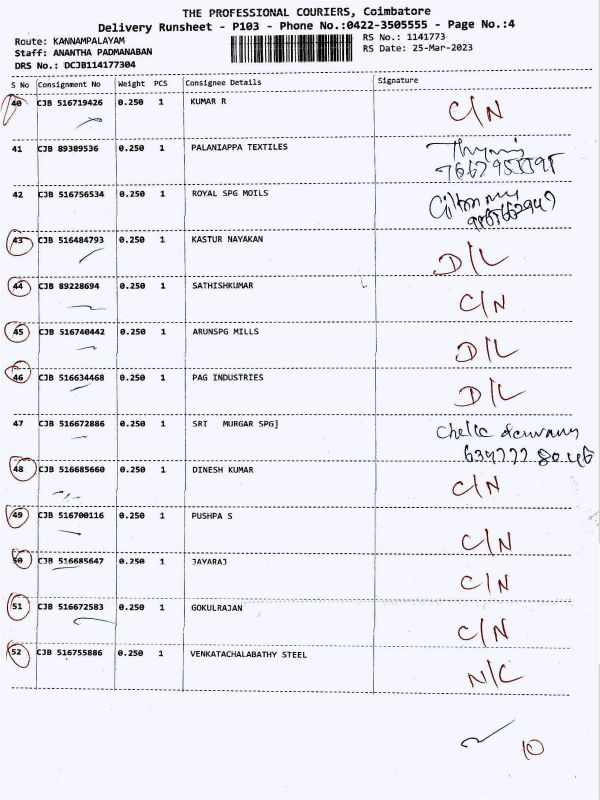 THE PROFESSIONAL COURIERS, Coimbatore
Delivery Runsheet - P103 - Phone No.:0422-3505555 - Page No.:4
Route: KANNAMPALAYAM RS No.: 1141773
Staff: ANANTHA PADMANABAN RS Date: 25-Mar-2023
DRS No.: DCJB114177304
S No Consignment No Weight PCS Consignee Details Signature
40 CJB 516719426 0.250 1 KUMAR R C/N
41 CJB 89389536 0.250 1 PALANIAPPA TEXTILES
42 CJB 516756534 0.250 1 ROYAL SPG MOILS
43 CJB 516484793 0.250 1 KASTUR NAYAKAN D/L
44 CJB 89228694 0.250 1 SATHISHKUMAR C/N
45 CJB 516740442 0.250 1 ARUNSPG MILLS D/L
46 CJB 516634468 0.250 1 PAG INDUSTRIES D/L
47 CJB 516672886 0.250 1 SRI MURGAR SPG]
48 CJB 516685660 0.250 1 DINESH KUMAR C/N
49 CJB 516700116 0.250 1 PUSHPA S C/N
50 CJB 516685647 0.250 1 JAYARAJ C/N
51 CJB 516672583 0.250 1 GOKULRAJAN C/N
52 CJB 516755886 0.250 1 VENKATACHALABATHY STEEL N/C
10